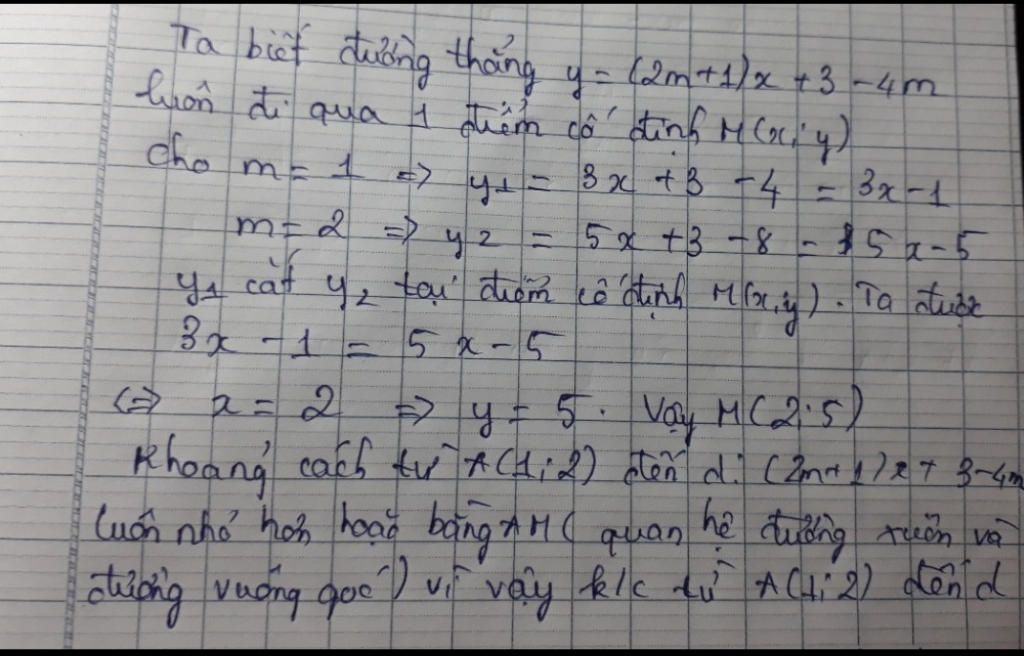 Ta biết đường thẳng y = (2m+1)x + 3 - 4m
luôn đi qua 1 điểm cố định M(x; y)
cho m = 1 => y1 = 3x + 3 - 4 = 3x - 1
m = 2 => y2 = 5x + 3 - 8 = 5x - 5
y1 cắt y2 tại điểm cố định M(x,y). Ta được
3x - 1 = 5x - 5
<=> x = 2 => y = 5. Vậy M(2;5)
Khoảng cách từ A(1;2) đến d: (2m+1)x + 3-4m
luôn nhỏ hơn hoặc bằng AM (quan hệ đường xuên và
đường vuông góc) vì vậy k/c từ A(1;2) đến d